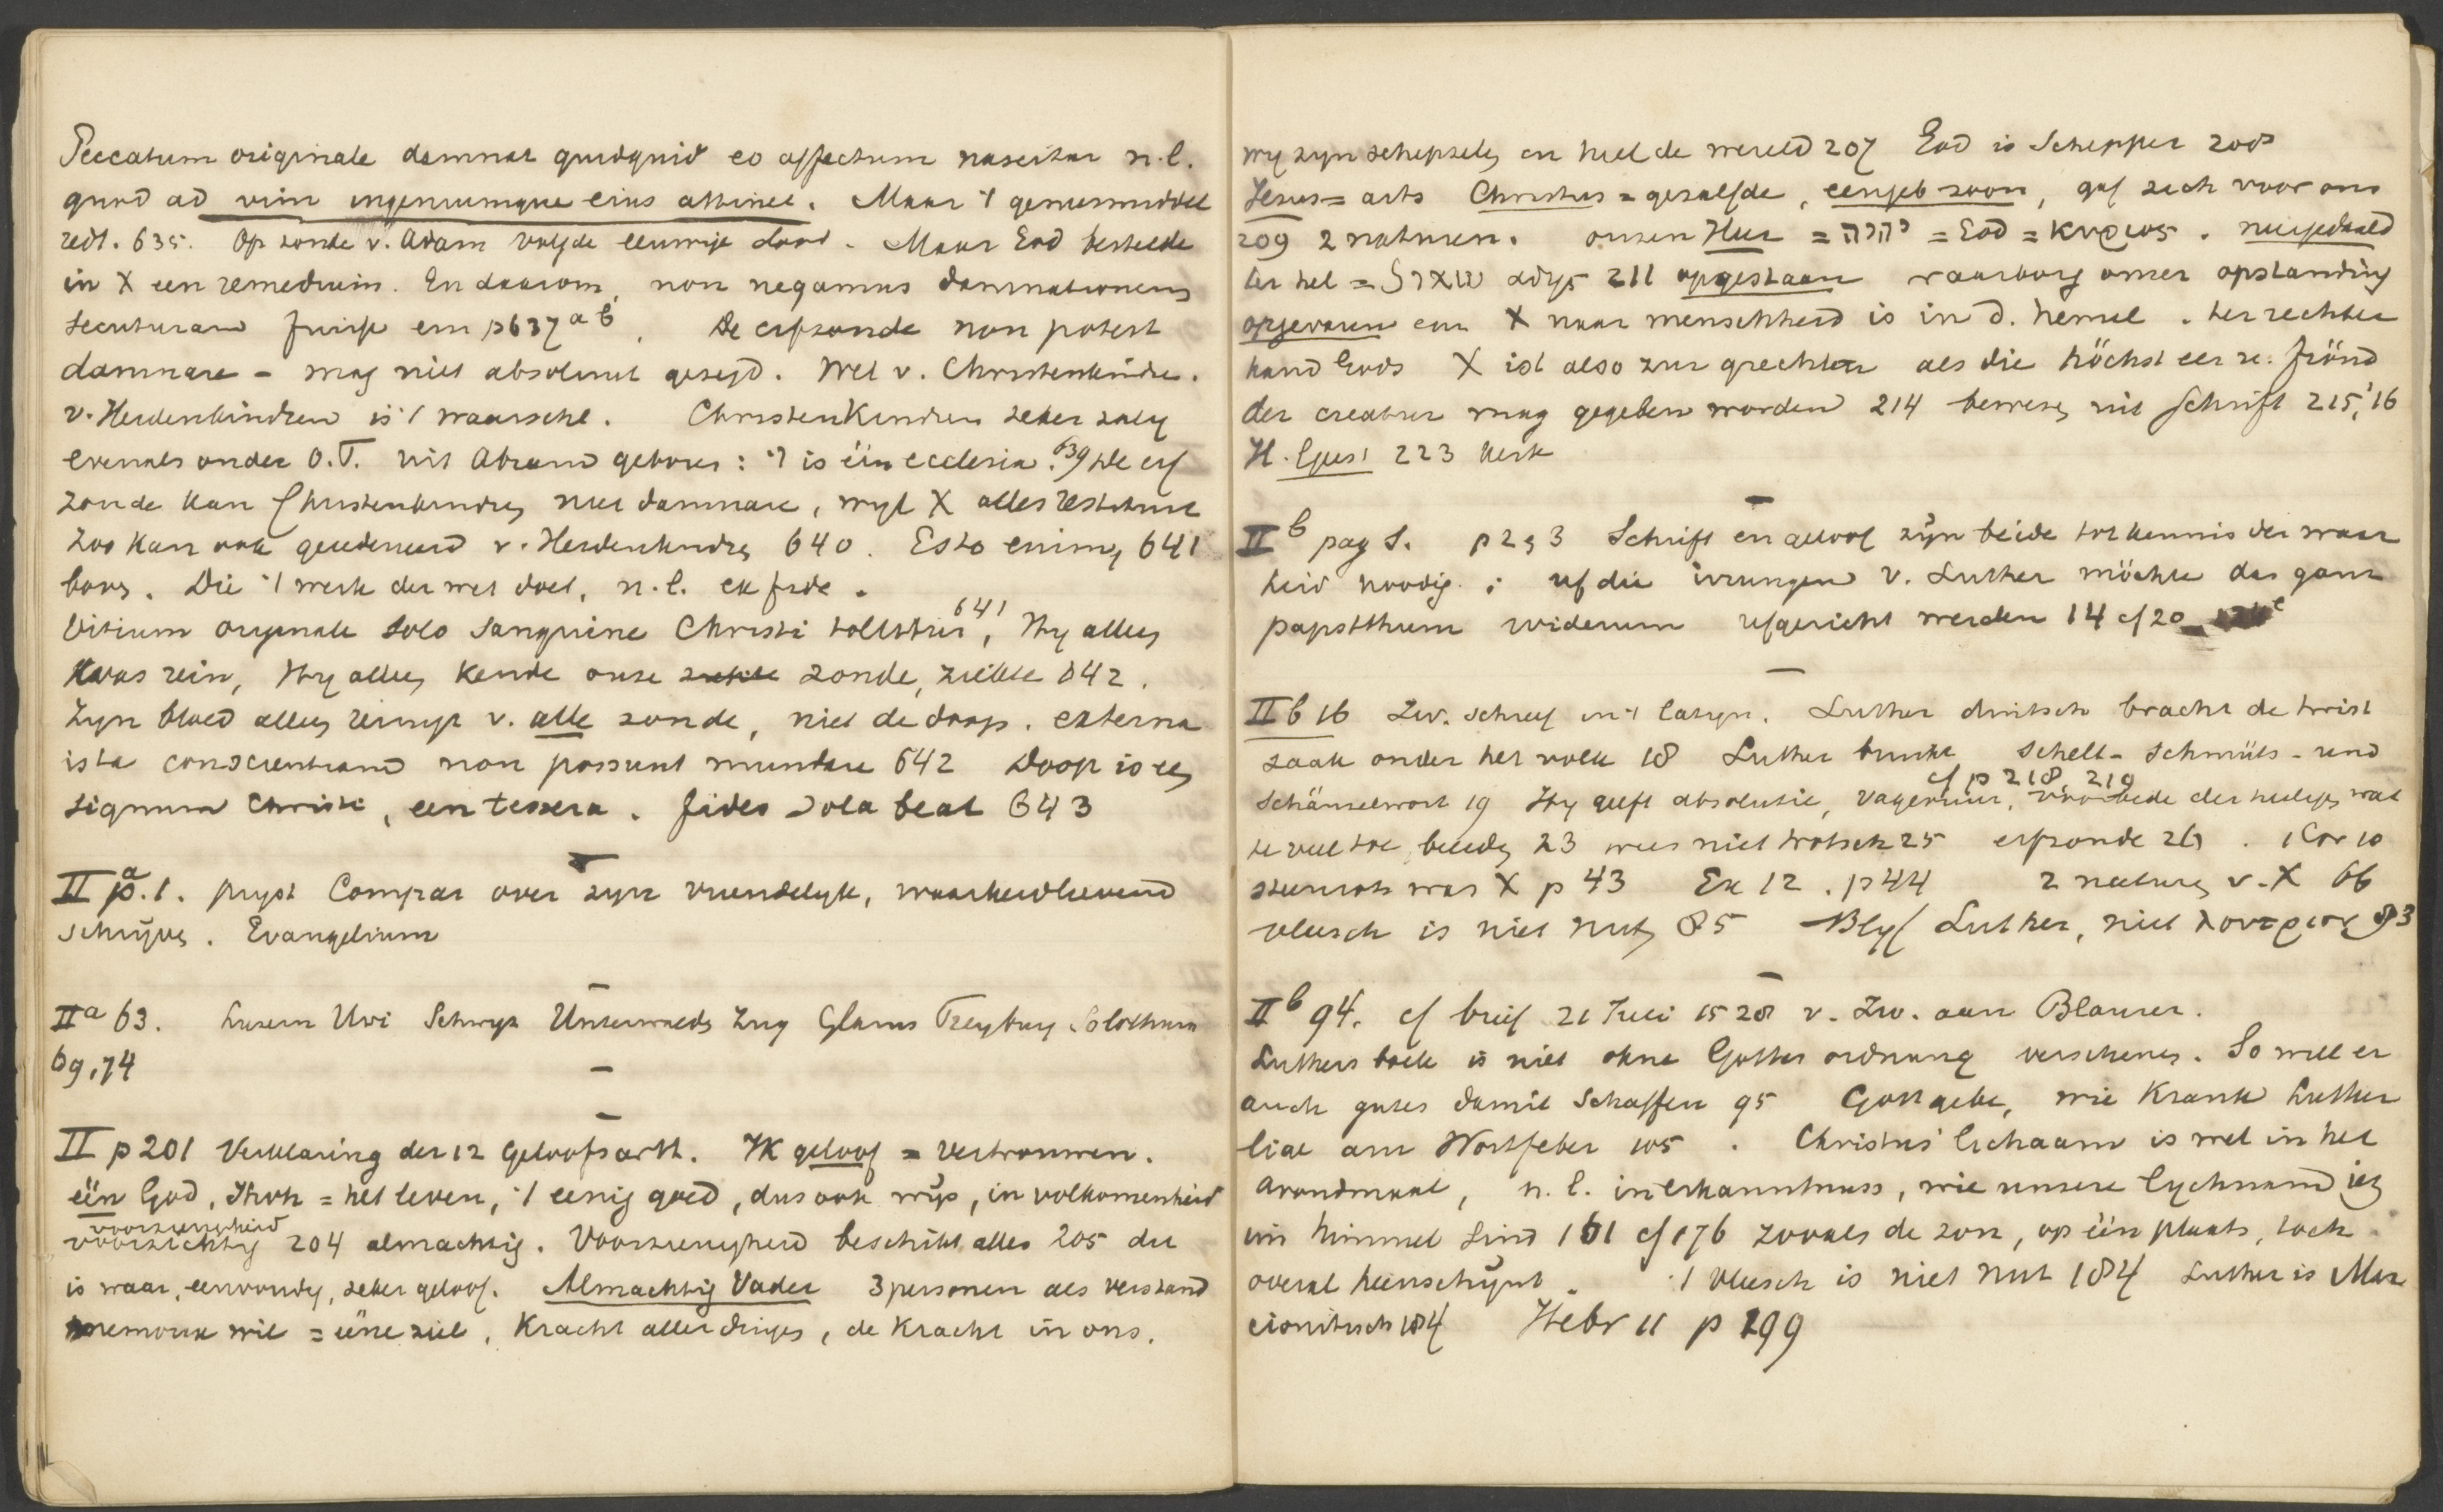 Peccatum originale damnat quidquid eo affectum nascitur n.l.
quod ad vim ingeniumque eius attinet. Maar 't geneesmiddel
redt. 635. Op zonde v. Adam volgde eeuwige dood. Maar God bestelde
in X een remedium. En daarom, non negamus damnationem
secuturam fuisse em p637 a b. De erfzonde non potest
damnare - mag niet absoluut gezegd. Wel v. Christenkindre.
v. Heidenkindren is 't waarschl. Christenkindren zeker zalig
evenals onder O.T. uit Abram geboren: 't is één ecclesia. 639 De erf
zonde kan Christenkindren niet damnare, wijl X alles restituit
Zoo kan ook geredeneerd v. Heidenkindren 640. Esto enim, 641
boven. Die 't werk der wet doet, n.l. ex fide.
Vitium originale solo sanguine Christi tollitur 641, Hij alleen
was rein, Hij alleen kende onze zonde, ziekte 642.
Zijn bloed alleen reinigt v. alle zonde, niet de doop. externa
ista conscientiam non possunt mundare 642 Doop is een
signum Christi, een tessera. fides sola beat 643
II a p.1. prijst Compar over zijn vriendelijk, waarheidlievend
schrijven. Evangelium
II a 63. Luzern Uri Schwyz Unterwalden Zug Glarus Freyburg Solothurn
69, 74
II p 201 Verklaring der 12 geloofsartt. Ik geloof = vertrouwen.
één God, Jhvh = het leven, 't eenig goed, dus ook wijs, in volkomenheid
voorzienigheid
voorzichtig 204 almachtig. Voorzienigheid beschikt alles 205 dit
is waar, eenvoudig, zeker geloof. Almachtig Vader 3 personen als verstand
memorie wil = ééne ziel, Kracht aller dinges, de Kracht in ons.
wij zijn schepselen en heel de wereld 207 God is Schepper 208
Jesus = arts Christus = gezalfde, eengeb zoon, gaf zich voor ons
209 2 naturen. onzen Heer = יהוה = God = κυριος. neergedaald
ter hel = שאול αδης 211 opgestaan waarborg onzer opstanding
opgevaren en X naar menschheid is in d. hemel. ter rechter
hand Gods X ist also zur grechten als die höchst eer u. fröud
der creatur mag gegeben worden 214 bewezen uit Schrift 215, '16
H. Geest 223 Kerk
II b pag 1. p 2, 3 Schrift en geloof zijn beide tot kennis der waar
heid noodig; uf die irrungen v. Luther möchte das ganz
papstthum widerum ufgericht werden 14 cf 20
II b 16 Zw. schreef in 't Latijn. Luther duitsch bracht de twist
zaak onder het volk 18 Luther bruikt Schelt- Schmütz- und
cf p 218, 219
Schänzelwort 19 Hij geeft absolutie, vagevuur, voorbede der heiligen wat
te veel toe 23 wees niet trotsch 25 erfzonde 26. 1 Cor 10
steenrots was X p 43 Ex 12. p 44 2 naturen v. X 66
vleesch is niet nut 85 Blijf Luther, niet λουτριον 83
II b 94. cf brief 21 Juli 1528 v. Zw. aan Blaurer.
Luthers boek is niet ohne Gottes ordnung verschenen. So will er
auch gutes damit schaffen 95 Gott gebe, wie Krank Luther
lige am Wortfeber 105. Christus' lichaam is wel in het
avondmaal, n.l. in erkanntnuss, wie unsere lychnam iez
im himmel sind 161 cf 176 zooals de zon, op één plaats, toch
overal heenschijnt. 't vleesch is niet nut 184 Luther is Mar
cionitisch 184 Hebr 11 p 199